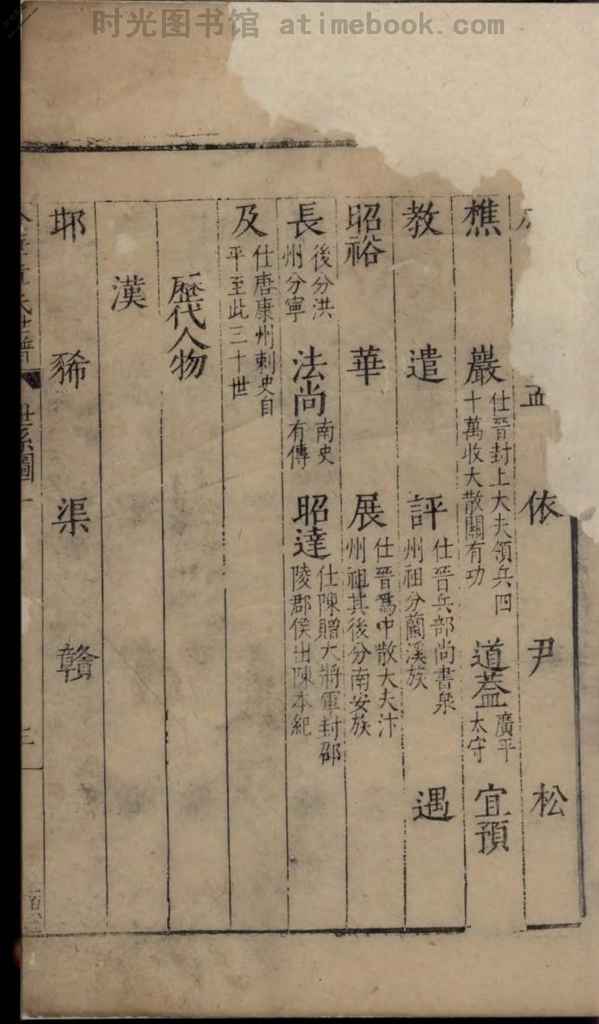 时光图书馆 atimebook.com
孟 依 尹 松
樵 巖 仕晉封上大夫領兵四十萬收大散關有功 道蓋 廣平太守 宜預
教 遣 評 仕晉兵部尚書泉州祖分蘭溪族 遇
昭裕 華 展 仕晉爲中散大夫汴州祖其後分南安族
長 後分洪州分寧 法尚 南史有傳 昭達 仕陳贈大將軍封邵陵郡侯出陳本紀
及 仕唐康州刺史自平至此三十世
歷代人物
漢
邯 豨 渠 贛
氏世譜 世系圖